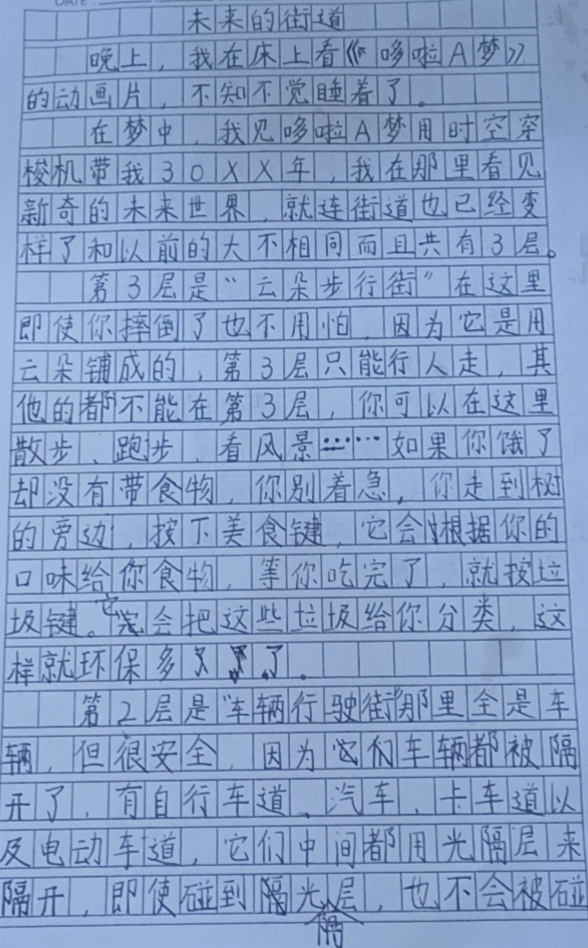 未来的街道
晚上，我在床上看《哆啦A梦》
的动画片，不知不觉睡着了。
在梦中，我见哆啦A梦用时空穿
梭机带我30XX年，我在那里看见
新奇的未来世界，就连街道也已经变
样了和以前的大不相同而且共有3层。
第3层是“云朵步行街”在这里
即使你摔倒了也不用怕，因为它是用
云朵铺成的，第3层只能行人走，其
他的都不能在第3层，你可以在这里
散步、跑步、看风景……如果你饿了
却没有带食物，你别着急，你走到树
的旁边，按下美食键，它会根据你的
口味给你食物，等你吃完了，就按垃
圾键。它会把这些垃圾给你分类，这
样就环保多了。
第2层是“车辆行驶街”那里全是车
辆，但很安全，因为它们车辆都被隔
开了，有自行车道、汽车、卡车道以
及电动车道，它们中间都用光隔层来
隔开，即使碰到光隔层，也不会被碰